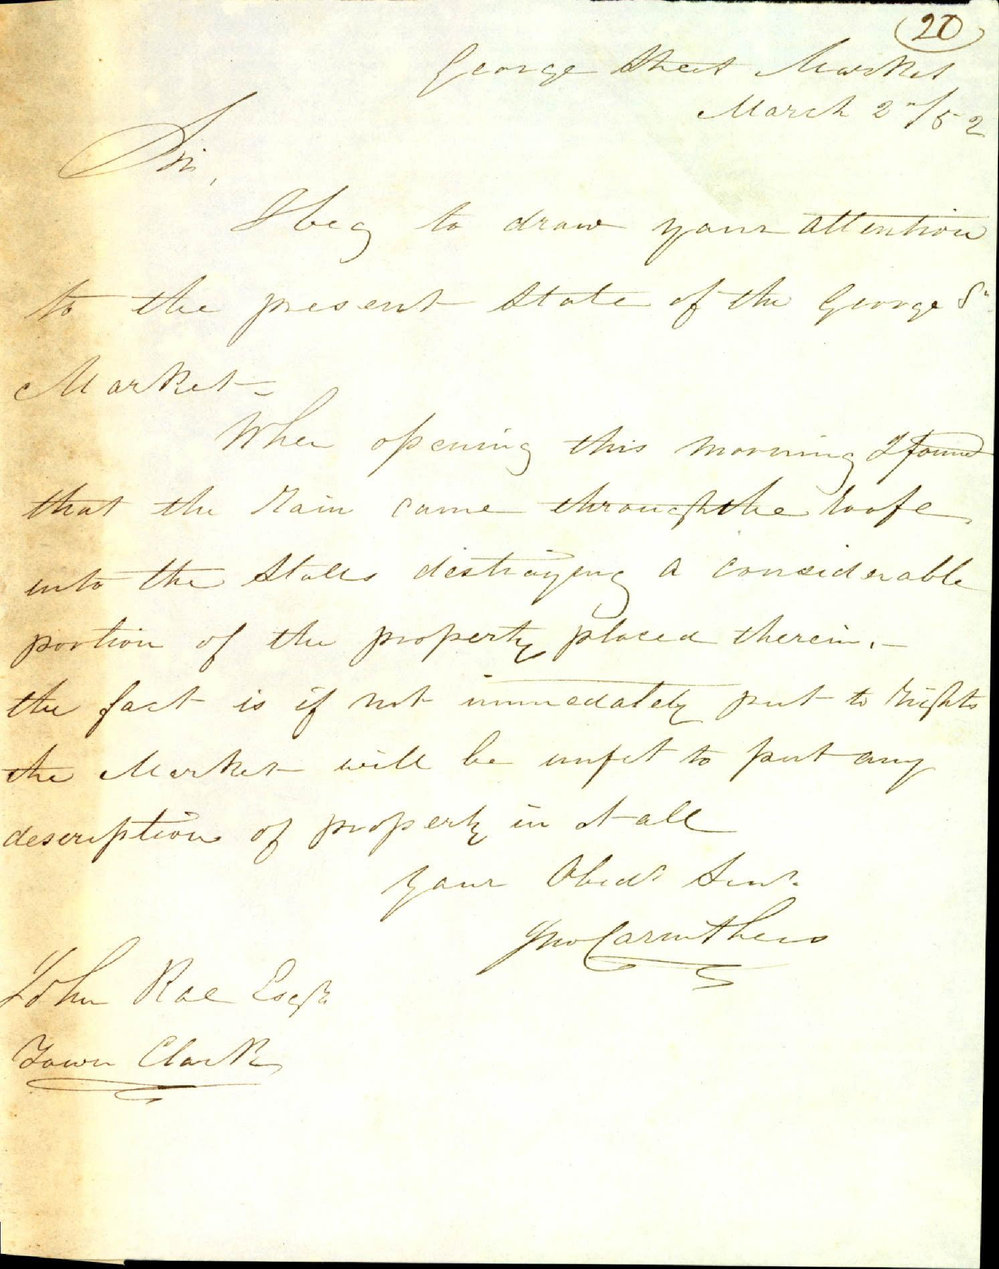 20
George Street Market
March 2n/52
Sir,
I beg to draw your attention
to the present State of the George St
Market -
When opening this morning I found
that the Rain came through the Roofe
into the Stalls distroying a considerable
portion of the property placed therein. -
the fact is if not immedately put to Rights
the Market will be unfit to put any
description of property in at all
Your Obedt Servt
Jno Carruthers
John Rae Esqr
Town Clark